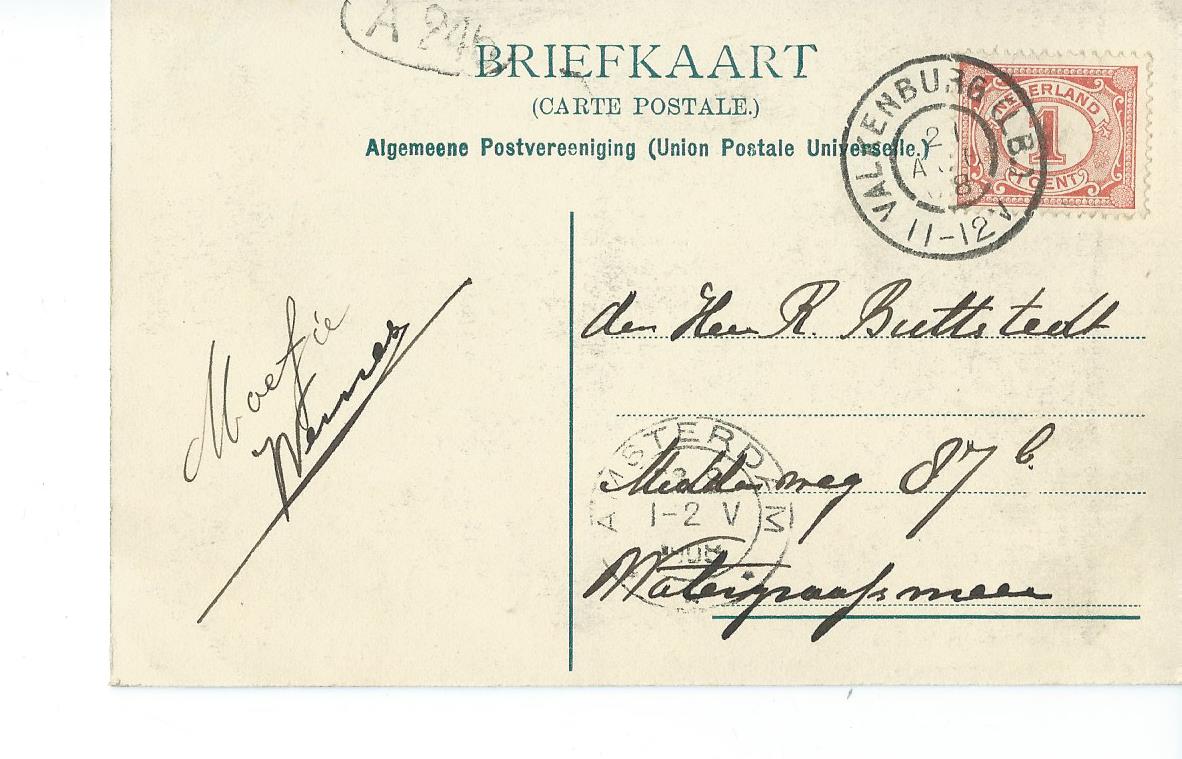 A 24
BRIEFKAART
(CARTE POSTALE.)
Algemeene Postvereeniging (Union Postale Universelle.)
VALKENBURG (LB.)
11-12V
NEDERLAND
1
1 CENT
den Heer R. Buttstedt
Middenweg 87 b.
Watergraafsmeer
AMSTERDAM
1-2 V
Moetjie